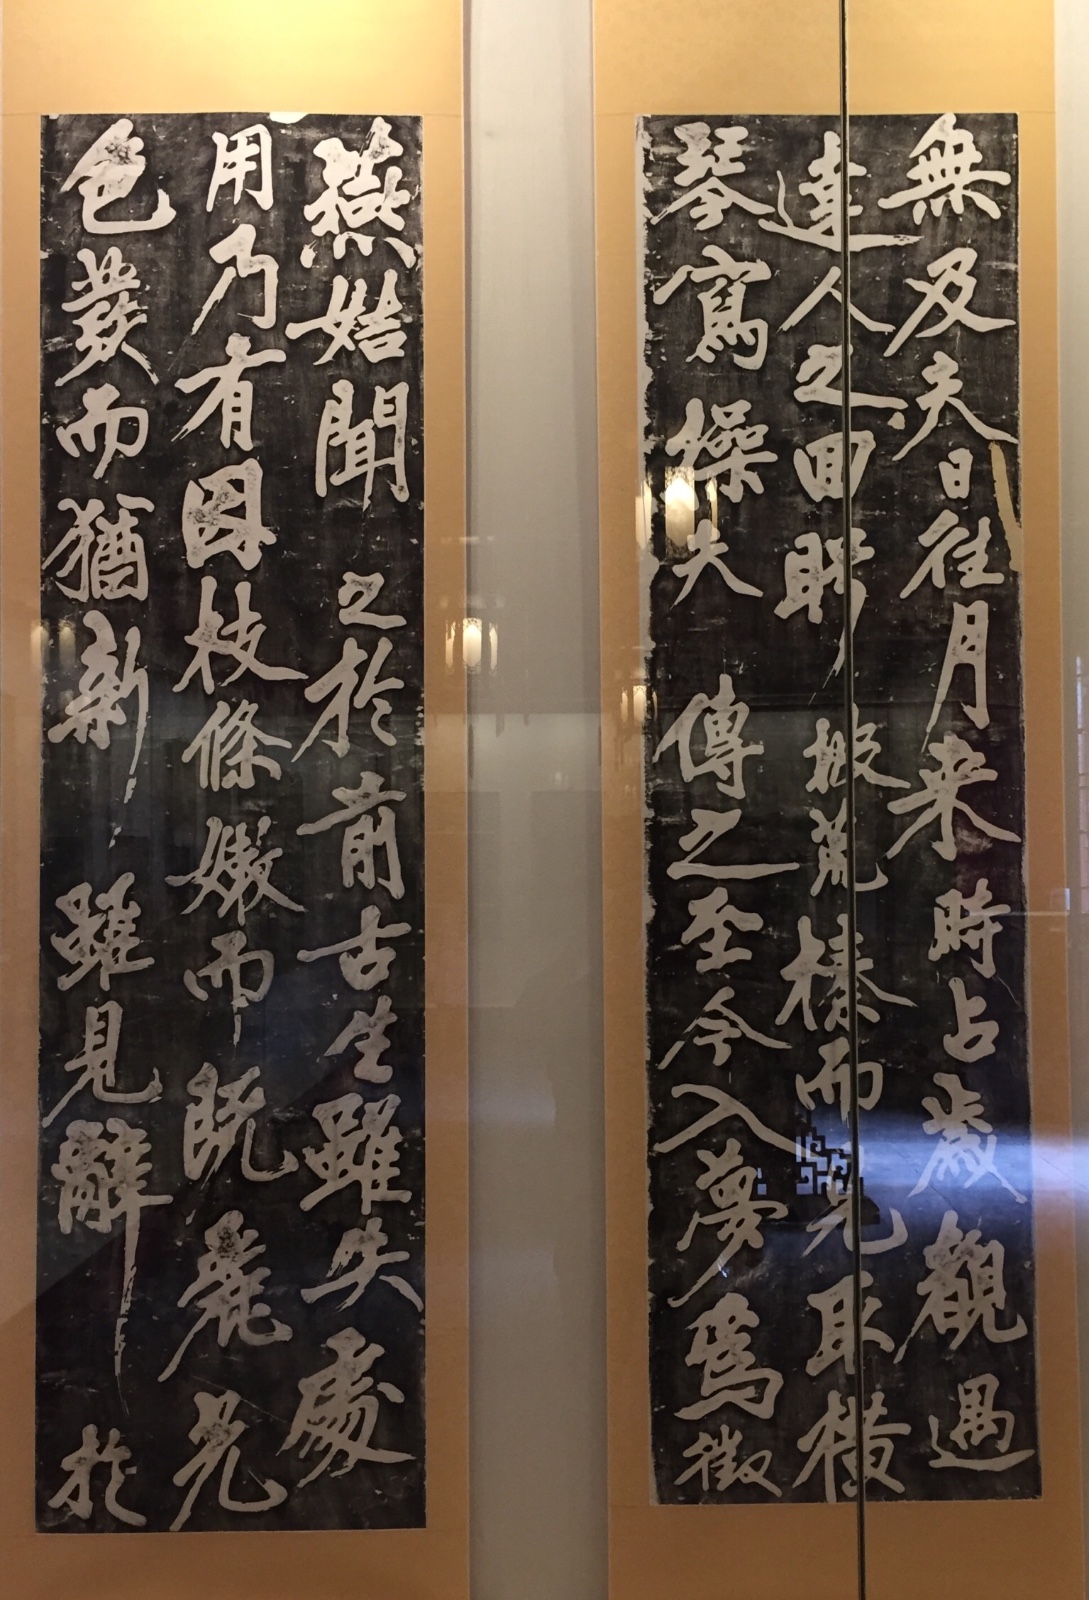 無及夫日往月来時占歲觀遇
達人之回眄披荒榛而見取橫
琴寫操夫傳之至今入夢爲徵
燕姞聞之於前古生雖失處
用乃有因枝條嫩而既麗光
色發而猶新雖見辭於